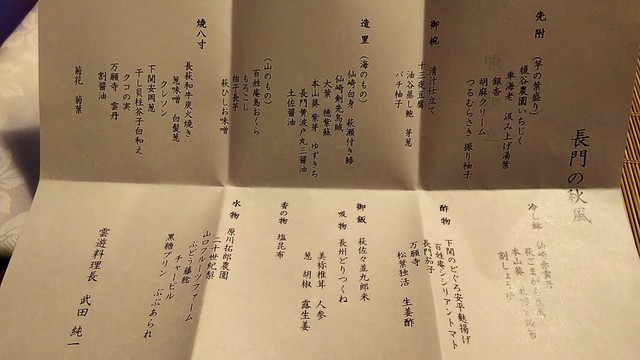 長門の秋風
先附
(芋の葉盛り)
榎谷農園いちじく
車海老 汲み上げ湯葉
銀杏
胡麻クリーム
つるむらさき 振り柚子
御椀
清汁仕立て
十三夜豆腐
油谷蒸し鮑 芽葱
バチ柚子
造里
(海のもの)
仙崎白身 萩瀬付き鯵
仙崎剣先烏賊
大葉 穂紫蘇
本山葵 紫芽 ゆずきち
長門黄波戸丸三醤油
土佐醤油
(山のもの)
百姓庵島おくら
もろこし
拍子長芋
萩ひしお味噌
焼八寸
長萩和牛炭火焼き
葱味噌 白髪葱
クレソン
下関安岡葱
干し貝柱芥子白和え
クコの実
万願寺 雲丹
割醤油
菊花 菊葉
冷し鉢
仙崎赤雲丹
本山葵
割しょうゆ
酢物
下関のどぐろ安平麩揚げ
百姓庵シシリアントマト
長門茄子
万願寺
松葉独活 生姜酢
御飯
萩佐々並九郎米
吸物
長州どりつくね
美祢椎茸 人参
葱 胡椒 露生姜
香の物
塩昆布
水物
原川拓郎農園
二十世紀梨
山口フルーツファーム
ぶどう藤稔
チャービル
黒糖プリン ぶぶあられ
雲遊料理長 武田 純一